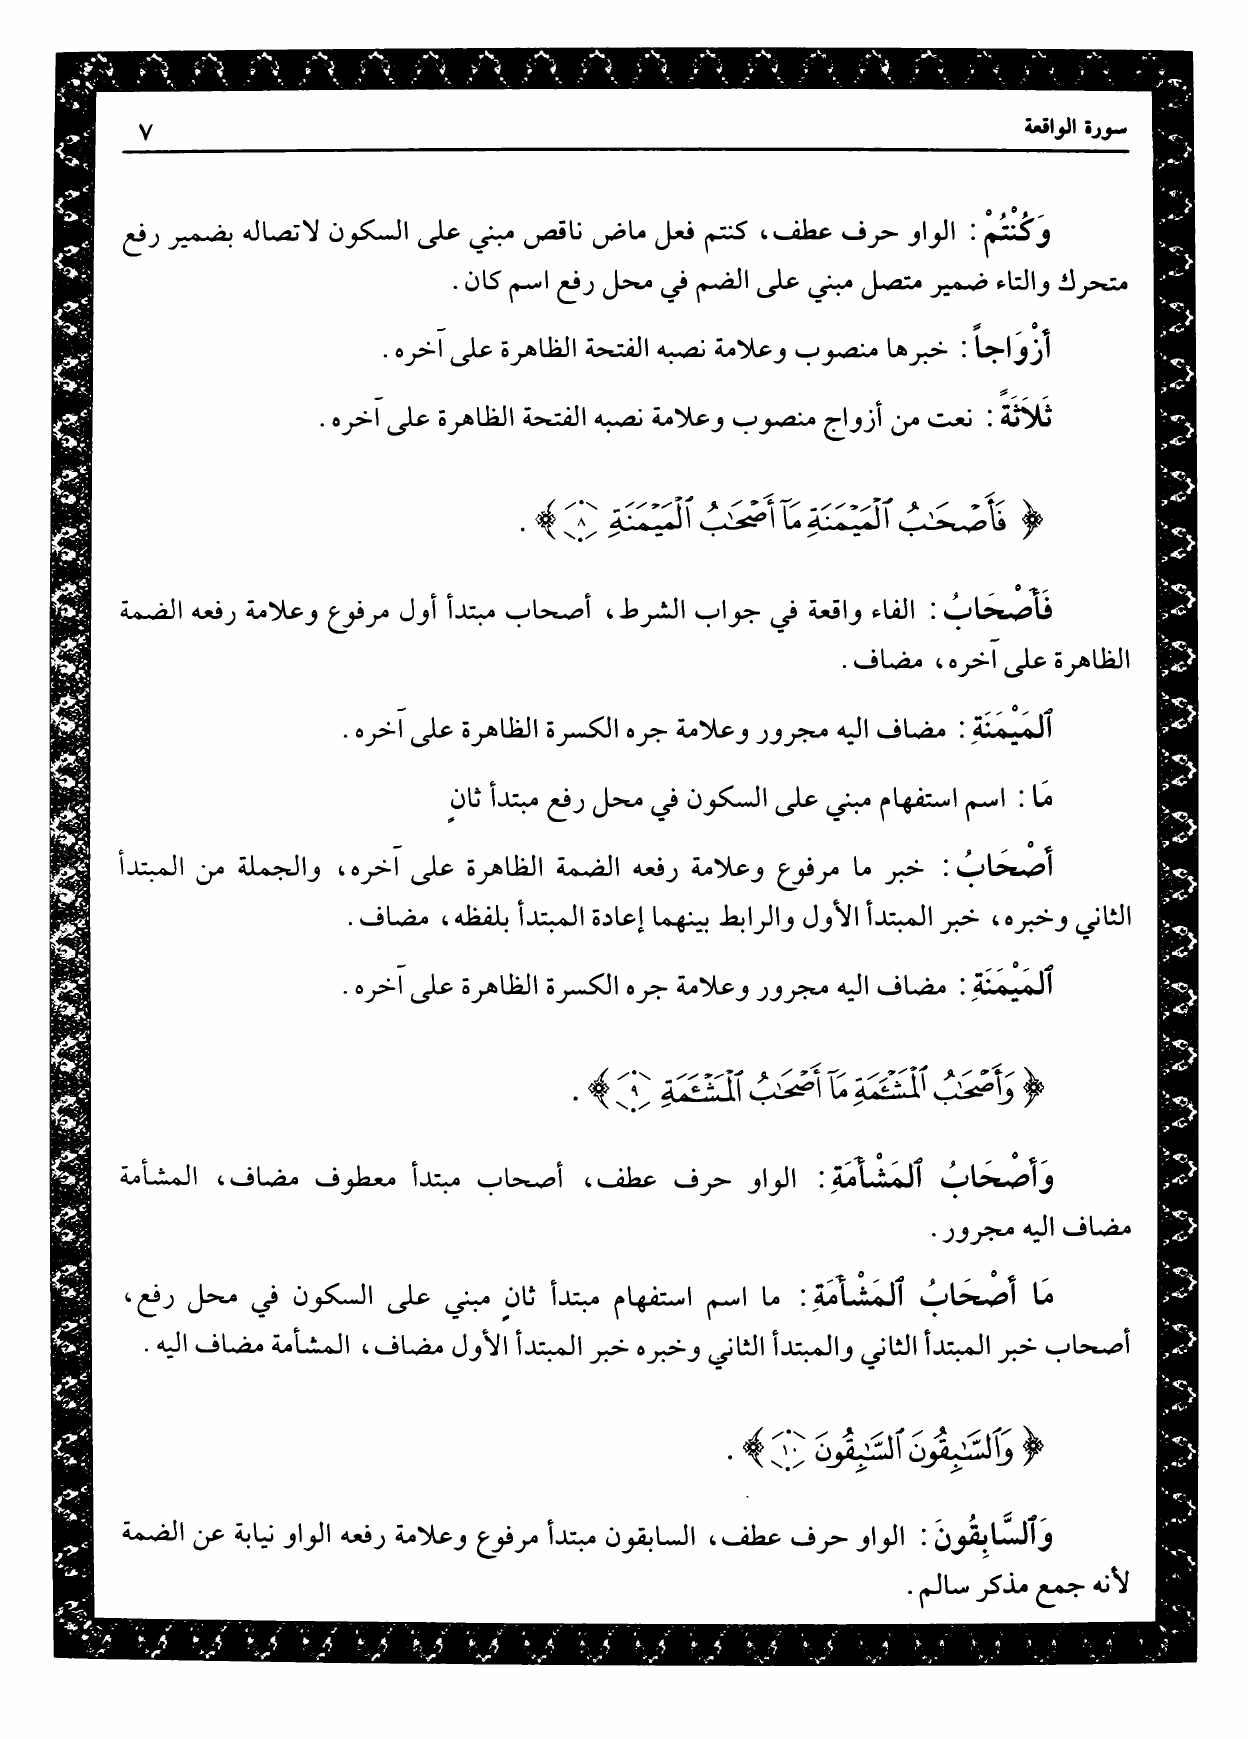 سورة الواقعة ٧
وَكُنْتُمْ : الواو حرف عطف، كنتم فعل ماض ناقص مبني على السكون لاتصاله بضمير رفع
متحرك والتاء ضمير متصل مبني على الضم في محل رفع اسم كان .
أَزْوَاجاً : خبرها منصوب وعلامة نصبه الفتحة الظاهرة على آخره .
ثَلَاثَةً : نعت من أزواج منصوب وعلامة نصبه الفتحة الظاهرة على آخره .
﴿ فَأَصْحَٰبُ ٱلْمَيْمَنَةِ مَآ أَصْحَٰبُ ٱلْمَيْمَنَةِ ٨ ﴾ .
فَأَصْحَابُ : الفاء واقعة في جواب الشرط، أصحاب مبتدأ أول مرفوع وعلامة رفعه الضمة
الظاهرة على آخره، مضاف .
ٱلمَيْمَنَةِ : مضاف اليه مجرور وعلامة جره الكسرة الظاهرة على آخره .
مَا : اسم استفهام مبني على السكون في محل رفع مبتدأ ثانٍ
أَصْحَابُ : خبر ما مرفوع وعلامة رفعه الضمة الظاهرة على آخره، والجملة من المبتدأ
الثاني وخبره، خبر المبتدأ الأول والرابط بينهما إعادة المبتدأ بلفظه، مضاف .
ٱلمَيْمَنَةِ : مضاف اليه مجرور وعلامة جره الكسرة الظاهرة على آخره .
﴿ وَأَصْحَٰبُ ٱلْمَشْـَٔمَةِ مَآ أَصْحَٰبُ ٱلْمَشْـَٔمَةِ ٩ ﴾ .
وَأَصْحَابُ ٱلمَشْأَمَةِ : الواو حرف عطف، أصحاب مبتدأ معطوف مضاف، المشأمة
مضاف اليه مجرور .
مَا أَصْحَابُ ٱلمَشْأَمَةِ : ما اسم استفهام مبتدأ ثانٍ مبني على السكون في محل رفع،
أصحاب خبر المبتدأ الثاني والمبتدأ الثاني وخبره خبر المبتدأ الأول مضاف، المشأمة مضاف اليه .
﴿ وَٱلسَّٰبِقُونَ ٱلسَّٰبِقُونَ ١٠ ﴾ .
وَٱلسَّابِقُونَ : الواو حرف عطف، السابقون مبتدأ مرفوع وعلامة رفعه الواو نيابة عن الضمة
لأنه جمع مذكر سالم .